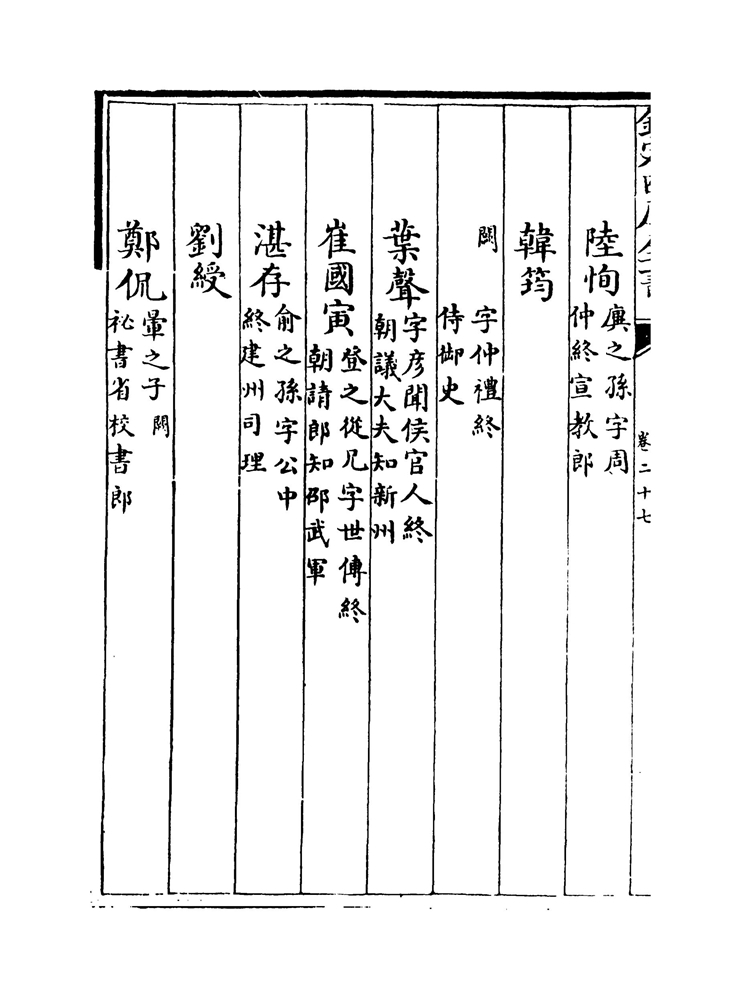 欽定四庫全書
卷二十七
陸恂廙之孫字周
仲終宣教郎
韓筠
闕字仲禮終
侍御史
葉聲字彥聞侯官人終
朝議大夫知新州
崔國寅登之從兄字世傳終
朝請郎知邵武軍
湛存俞之孫字公中
終建州司理
劉綬
鄭侃暈之子闕
祕書省校書郎